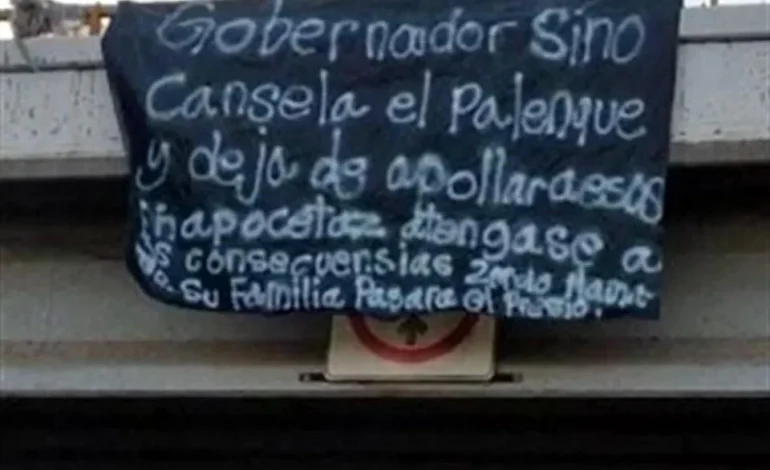 Gobernador Sino
Cansela el Palenque
y deja de apollar a esos
inapocetaz atengase a
consecuensias
Su Familia Pagara el Presio.